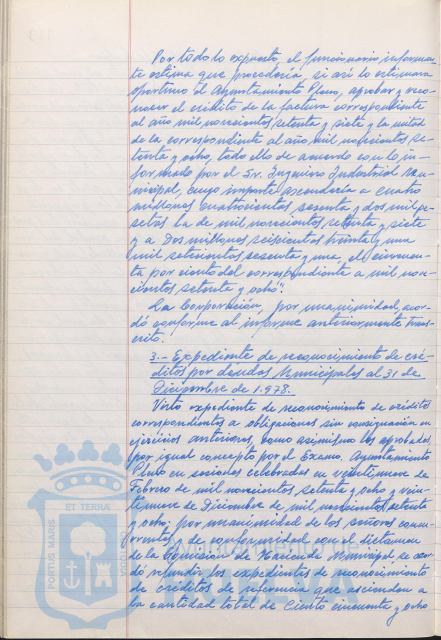 Por todo lo expuesto, el funcionario informan-
te estima que procedería, si así lo estimara
oportuno el Ayuntamiento Pleno, aprobar y reco-
nocer el crédito de la factura correspondiente
al año mil novecientos setenta y siete y la mitad
de la correspondiente al año mil novecientos se-
tenta y ocho, todo ello de acuerdo con lo in-
formado por el Sr. Ingeniero Industrial Mu-
nicipal, cuyo importe ascendería a cuatro
millones cuatrocientas sesenta y dos mil pe-
setas la de mil novecientos setenta y siete
y a dos millones seiscientas treinta y una
mil setecientas sesenta y una, el cincuen-
ta por ciento del correspondiente a mil nove-
cientos setenta y ocho".
La Corporación, por unanimidad, acor-
dó conforme al informe anteriormente trans-
crito.
3.- Expediente de reconocimiento de cré-
ditos por deudas Municipales al 31 de
Diciembre de 1.978.
Visto expediente de reconocimiento de créditos
correspondientes a obligaciones sin consignación en
ejercicios anteriores, como asimismo los aprobados
por igual concepto por el Excmo. Ayuntamiento
Pleno en sesiones celebradas en veintinueve de
Febrero de mil novecientos setenta y ocho y vein-
tinueve de Diciembre de mil novecientos setenta
y ocho; por unanimidad de los señores concu-
rrentes y de conformidad con el dictamen
de la Comisión de Hacienda Municipal se acor-
dó refundir los expedientes de reconocimiento
de créditos de referencia que ascienden a
la cantidad total de Ciento cincuenta y ocho
PORTUS MARIS ET TERRA